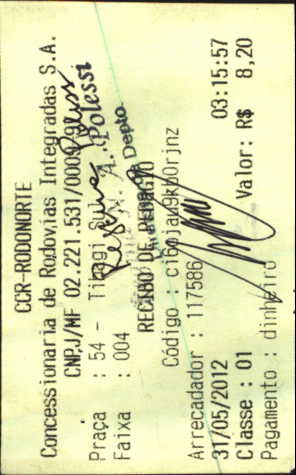 CCR-RODONORTE
Concessionaria de Rodovias Integradas S.A.
CNPJ/MF 02.221.531/0009
Praça : 54 - Tibagi Sul
Faixa : 004
A. Polessi
Depto.
RECIBO DE PEDAGIO
Código :
Arrecadador : 117586
31/05/2012 03:15:57
Classe : 01 Valor: R$ 8,20
Pagamento : dinheiro